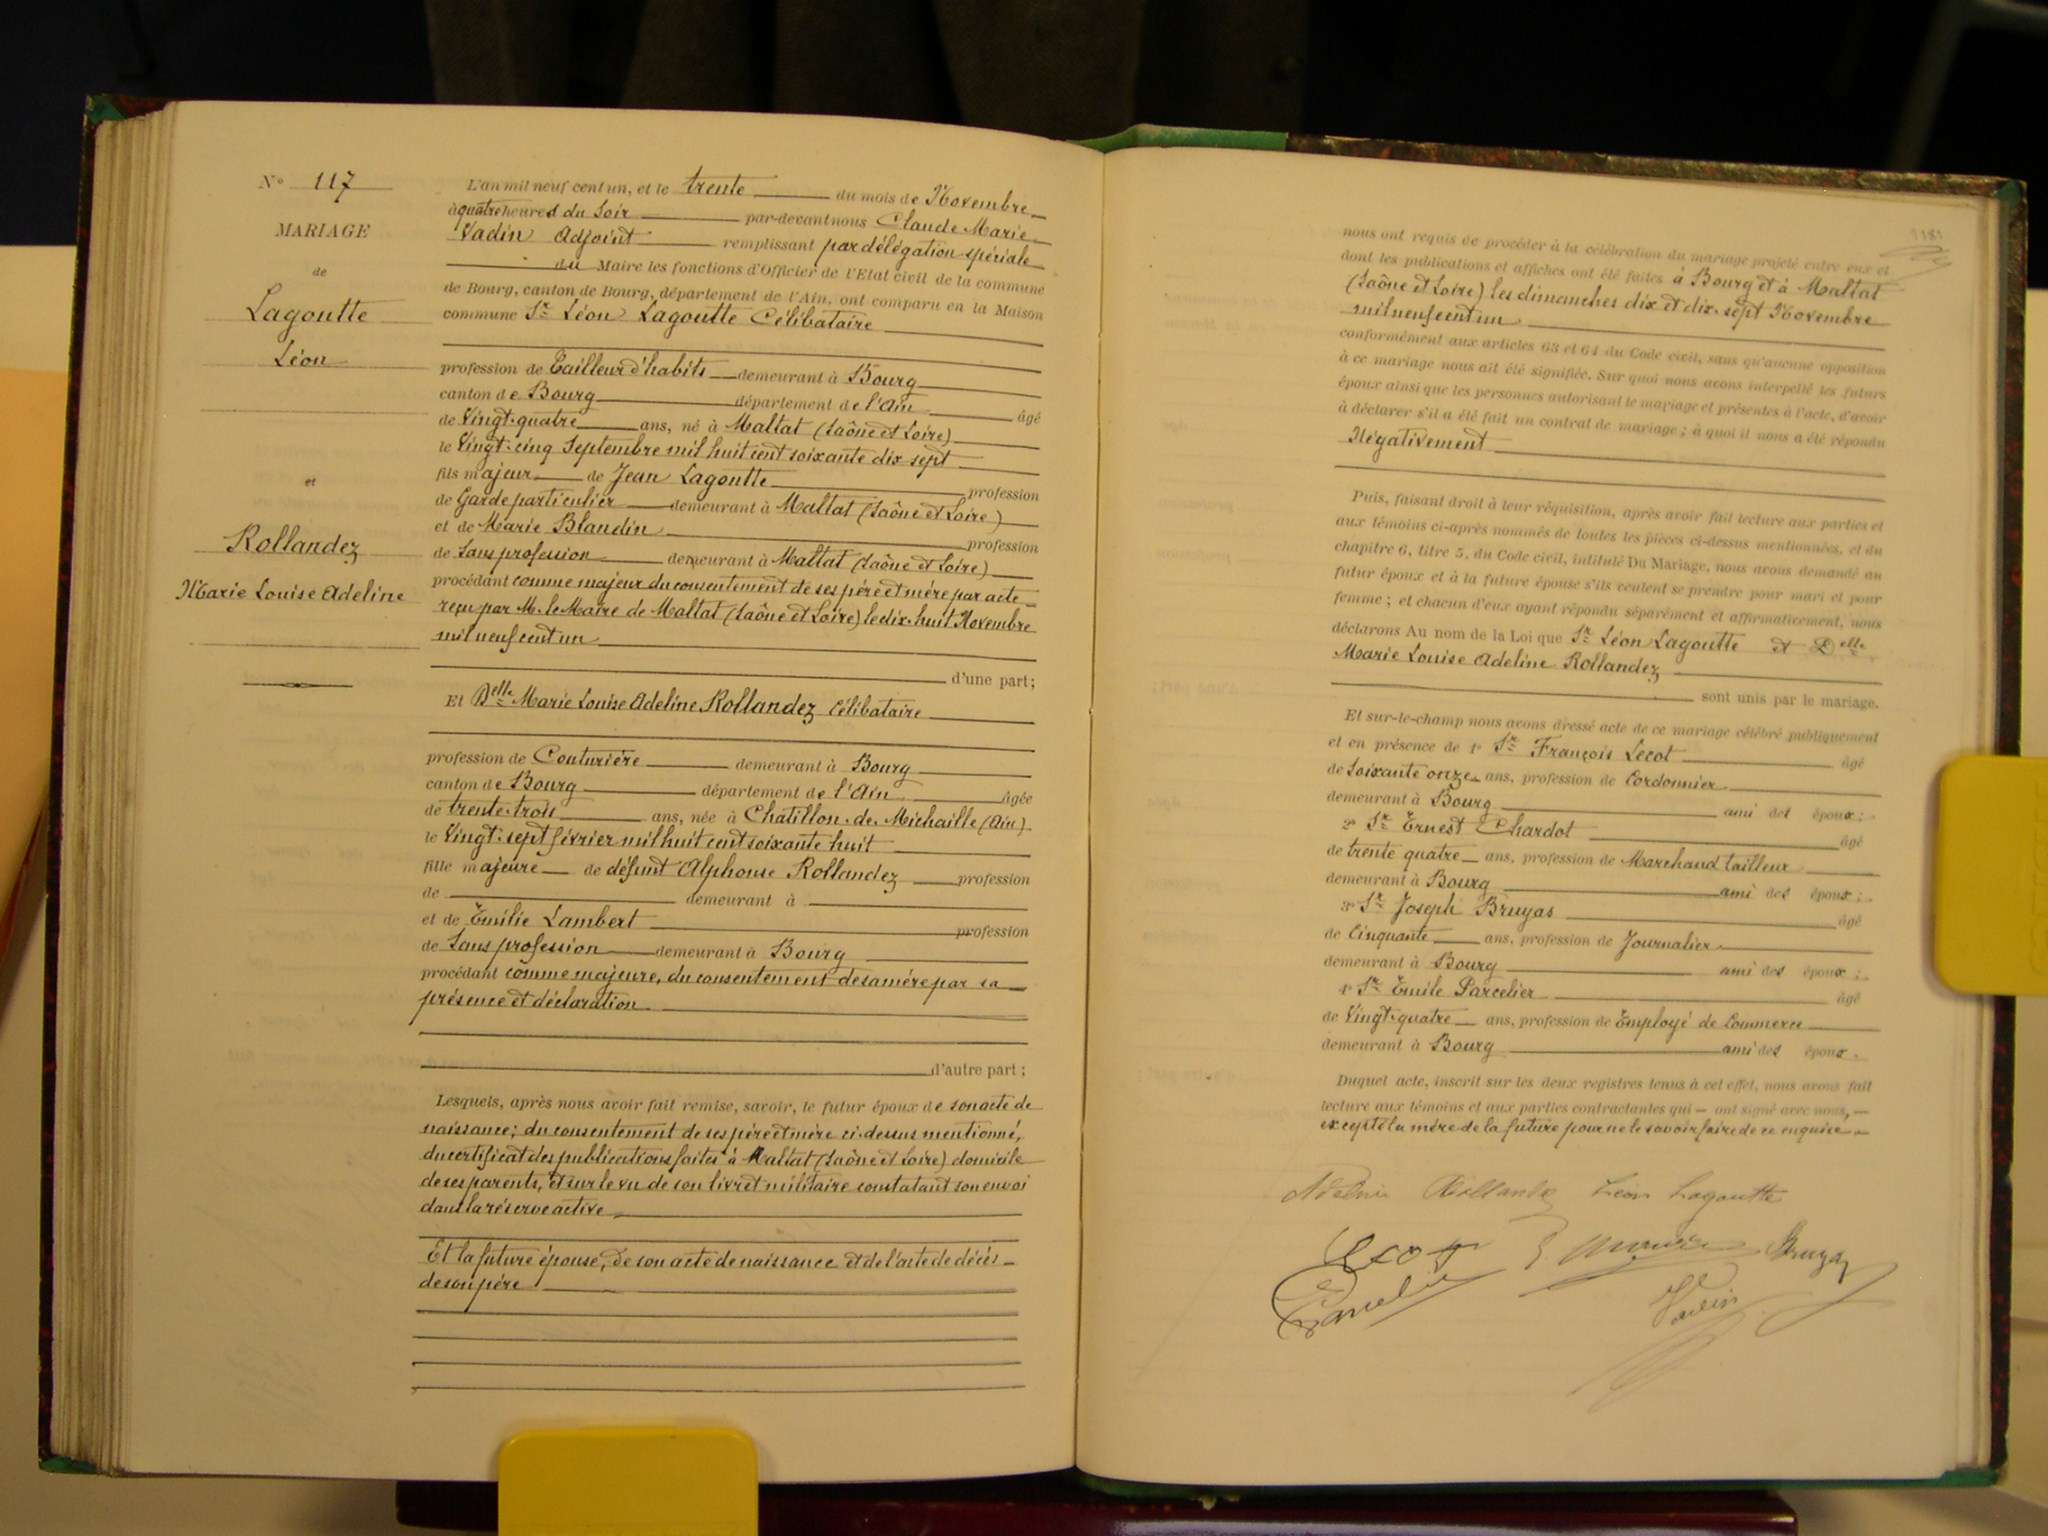 N° 117
MARIAGE
de
Lagoutte
Léon
et
Rollandez
Marie Louise Adeline
L'an mil neuf cent un, et le trente du mois de Novembre
à quatre heures du soir par-devant nous Claude Marie
Vadin Adjoint remplissant par délégation spéciale
du Maire les fonctions d'Officier de l'Etat civil de la commune
de Bourg, canton de Bourg, département de l'Ain, ont comparu en la Maison
commune Sr Léon Lagoutte Célibataire
profession de Tailleur d'habits demeurant à Bourg
canton de Bourg département de l'Ain âgé
de Vingt-quatre ans, né à Maltat (Saône et Loire)
le Vingt-cinq Septembre mil huit cent soixante dix sept
fils majeur de Jean Lagoutte profession
de Garde particulier demeurant à Maltat (Saône et Loire)
et de Marie Blandin profession
de Sans profession demeurant à Maltat (Saône et Loire)
procédant comme majeur du consentement de ses père et mère par acte
reçu par M. le Maire de Maltat (Saône et Loire) le dix-huit Novembre
mil neuf cent un
d'une part;
Et Delle Marie Louise Adeline Rollandez Célibataire
profession de Couturière demeurant à Bourg
canton de Bourg département de l'Ain âgée
de trente-trois ans, née à Chatillon-de-Michaille (Ain)
le Vingt-sept février mil huit cent soixante huit
fille majeure de défunt Alphonse Rollandez profession
de demeurant à
et de Emilie Lambert profession
de Sans profession demeurant à Bourg
procédant comme majeure, du consentement de sa mère par sa
présence et déclaration
d'autre part;
Lesquels, après nous avoir fait remise, savoir, le futur époux de son acte de
naissance; du consentement de ses père et mère ci-dessus mentionné,
du certificat des publications faites à Maltat (Saône et Loire) domicile
de ses parents, et sur le vu de son livret militaire constatant son envoi
dans la réserve active
Et la future épouse, de son acte de naissance et de l'acte de décès
de son père
118
nous ont requis de procéder à la célébration du mariage projeté entre eux et
dont les publications et affiches ont été faites à Bourg et à Maltat
(Saône et Loire) les dimanches dix et dix-sept Novembre
mil neuf cent un
conformément aux articles 63 et 64 du Code civil, sans qu'aucune opposition
à ce mariage nous ait été signifiée. Sur quoi nous avons interpellé les futurs
époux ainsi que les personnes autorisant le mariage et présentes à l'acte, d'avoir
à déclarer s'il a été fait un contrat de mariage; à quoi il nous a été répondu
Négativement
Puis, faisant droit à leur réquisition, après avoir fait lecture aux parties et
aux témoins ci-après nommés de toutes les pièces ci-dessus mentionnées, et du
chapitre 6, titre 5, du Code civil, intitulé Du Mariage, nous avons demandé au
futur époux et à la future épouse s'ils veulent se prendre pour mari et pour
femme; et chacun d'eux ayant répondu séparément et affirmativement, nous
déclarons Au nom de la Loi que Sr Léon Lagoutte et Delle
Marie Louise Adeline Rollandez
sont unis par le mariage.
Et sur-le-champ nous avons dressé acte de ce mariage célébré publiquement
et en présence de 1° Sr François Lecot âgé
de Soixante onze ans, profession de Cordonnier
demeurant à Bourg ami des époux;
2° Sr Ernest Chardot âgé
de trente quatre ans, profession de Marchand tailleur
demeurant à Bourg ami des époux;
3° Sr Joseph Bruyas âgé
de Cinquante ans, profession de Journalier
demeurant à Bourg ami des époux;
4° Sr Emile Parcelier âgé
de Vingt-quatre ans, profession de Employé de Commerce
demeurant à Bourg ami des époux.
Duquel acte, inscrit sur les deux registres tenus à cet effet, nous avons fait
lecture aux témoins et aux parties contractantes qui ont signé avec nous,
excepté la mère de la future pour ne le savoir faire de ce enquise
Adeline Rollandez Léon Lagoutte
Lecot Bruyas
Parcelier Vadin